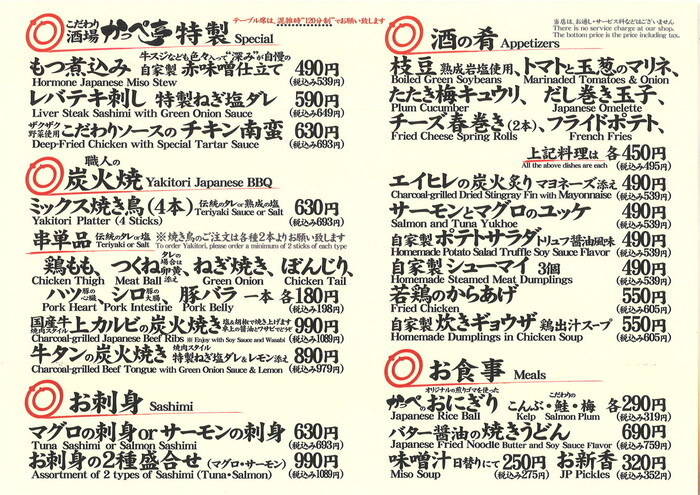 テーブル席は、混雑時"120分制"でお願い致します
こだわり酒場 かっぺ亭 特製 Special
牛スジなども色々入って"深み"が自慢の
もつ煮込み 自家製 赤味噌仕立て 490円
Hormone Japanese Miso Stew (税込み539円)
レバテキ刺し 特製ねぎ塩ダレ 590円
Liver Steak Sashimi with Green Onion Sauce (税込み649円)
ザクザク野菜使用 こだわりソースの チキン南蛮 630円
Deep-Fried Chicken with Special Tartar Sauce (税込み693円)
職人の
炭火焼 Yakitori Japanese BBQ
ミックス焼き鳥(4本) 伝統のタレor熟成の塩 630円
Teriyaki Sauce or Salt
Yakitori Platter (4 Sticks) (税込み693円)
串単品 伝統のタレor塩 ※焼き鳥のご注文は各種2本よりお願い致します
Teriyaki or Salt To order Yakitori, please order a minimum of 2 sticks of each type
鶏もも、つくね タレの場合は卵黄添え、ねぎ焼き、ぼんじり、
Chicken Thigh Meat Ball Green Onion Chicken Tail
ハツ 豚の心臓、シロ 豚の大腸 豚バラ 一本 各180円
Pork Heart Pork Intestine Pork Belly (税込み198円)
国産牛 焼肉スタイル 上カルビの炭火焼き 塩&胡椒で焼き上げます 卓上の醤油とワサビでどうぞ 990円
Charcoal-grilled Japanese Beef Ribs ※Enjoy with Soy Sauce and Wasabi (税込み1089円)
牛タンの炭火焼き 焼肉スタイル 特製ねぎ塩ダレ&レモン添え 890円
Charcoal-grilled Beef Tongue with Green Onion Sauce & Lemon (税込み979円)
お刺身 Sashimi
マグロの刺身 or サーモンの刺身 630円
Tuna Sashimi or Salmon Sashimi (税込み693円)
お刺身の2種盛合せ (マグロ・サーモン) 990円
Assortment of 2 types of Sashimi (Tuna・Salmon) (税込み1089円)
酒の肴 Appetizers
当店は、お通し・サービス料などはございません
There is no service charge at our shop.
The bottom price is the price including tax.
枝豆 熟成岩塩使用、トマトと玉葱のマリネ、
Boiled Green Soybeans Marinaded Tomatoes & Onion
たたき梅キュウリ、 だし巻き玉子、
Plum Cucumber Japanese Omelette
チーズ春巻き(2本)、フライドポテト、
Fried Cheese Spring Rolls French Fries
上記料理は 各450円
All the above dishes are each (税込み495円)
エイヒレの炭火炙り マヨネーズ添え 490円
Charcoal-grilled Dried Stingray Fin with Mayonnaise (税込み539円)
サーモンとマグロのユッケ 490円
Salmon and Tuna Yukhoe (税込み539円)
自家製 ポテトサラダ トリュフ醤油風味 490円
Homemade Potato Salad Truffle Soy Sauce Flavor (税込み539円)
自家製 シューマイ 3個 490円
Homemade Steamed Meat Dumplings (税込み539円)
若鶏のからあげ 550円
Fried Chicken (税込み605円)
自家製 炊きギョウザ 鶏出汁スープ 550円
Homemade Dumplings in Chicken Soup (税込み605円)
お食事 Meals
オリジナルの煎りゴマを使った こだわりの
かっぺのおにぎり こんぶ・鮭・梅 各290円
Japanese Rice Ball Kelp Salmon Plum (税込み319円)
バター醤油の焼きうどん 690円
Japanese Fried Noodle Butter and Soy Sauce Flavor (税込み759円)
味噌汁 日替りにて 250円 お新香 320円
Miso Soup (税込み275円) JP Pickles (税込み352円)